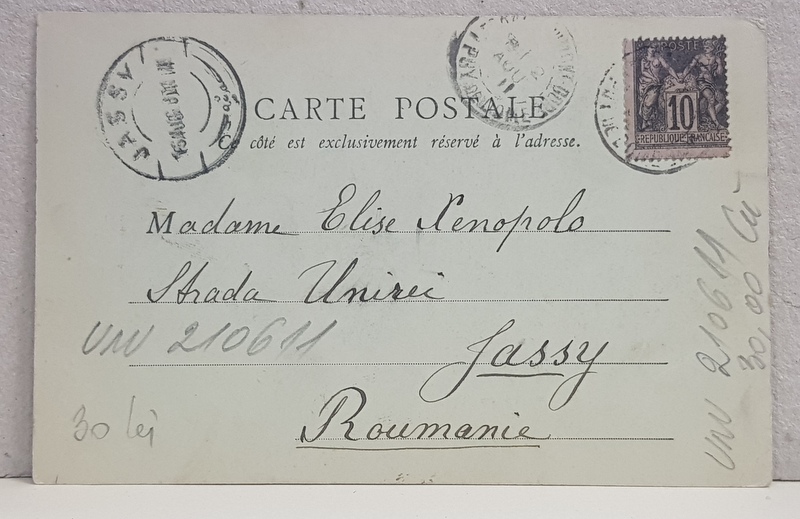 JASSY
CARTE POSTALE
Ce côté est exclusivement réservé à l'adresse.
POSTE
10
REPUBLIQUE FRANÇAISE
Madame Elise Xenopolo
Strada Unirei
Jassy
Roumanie
UNV 210611
30 lei
UNV 210611
30,00